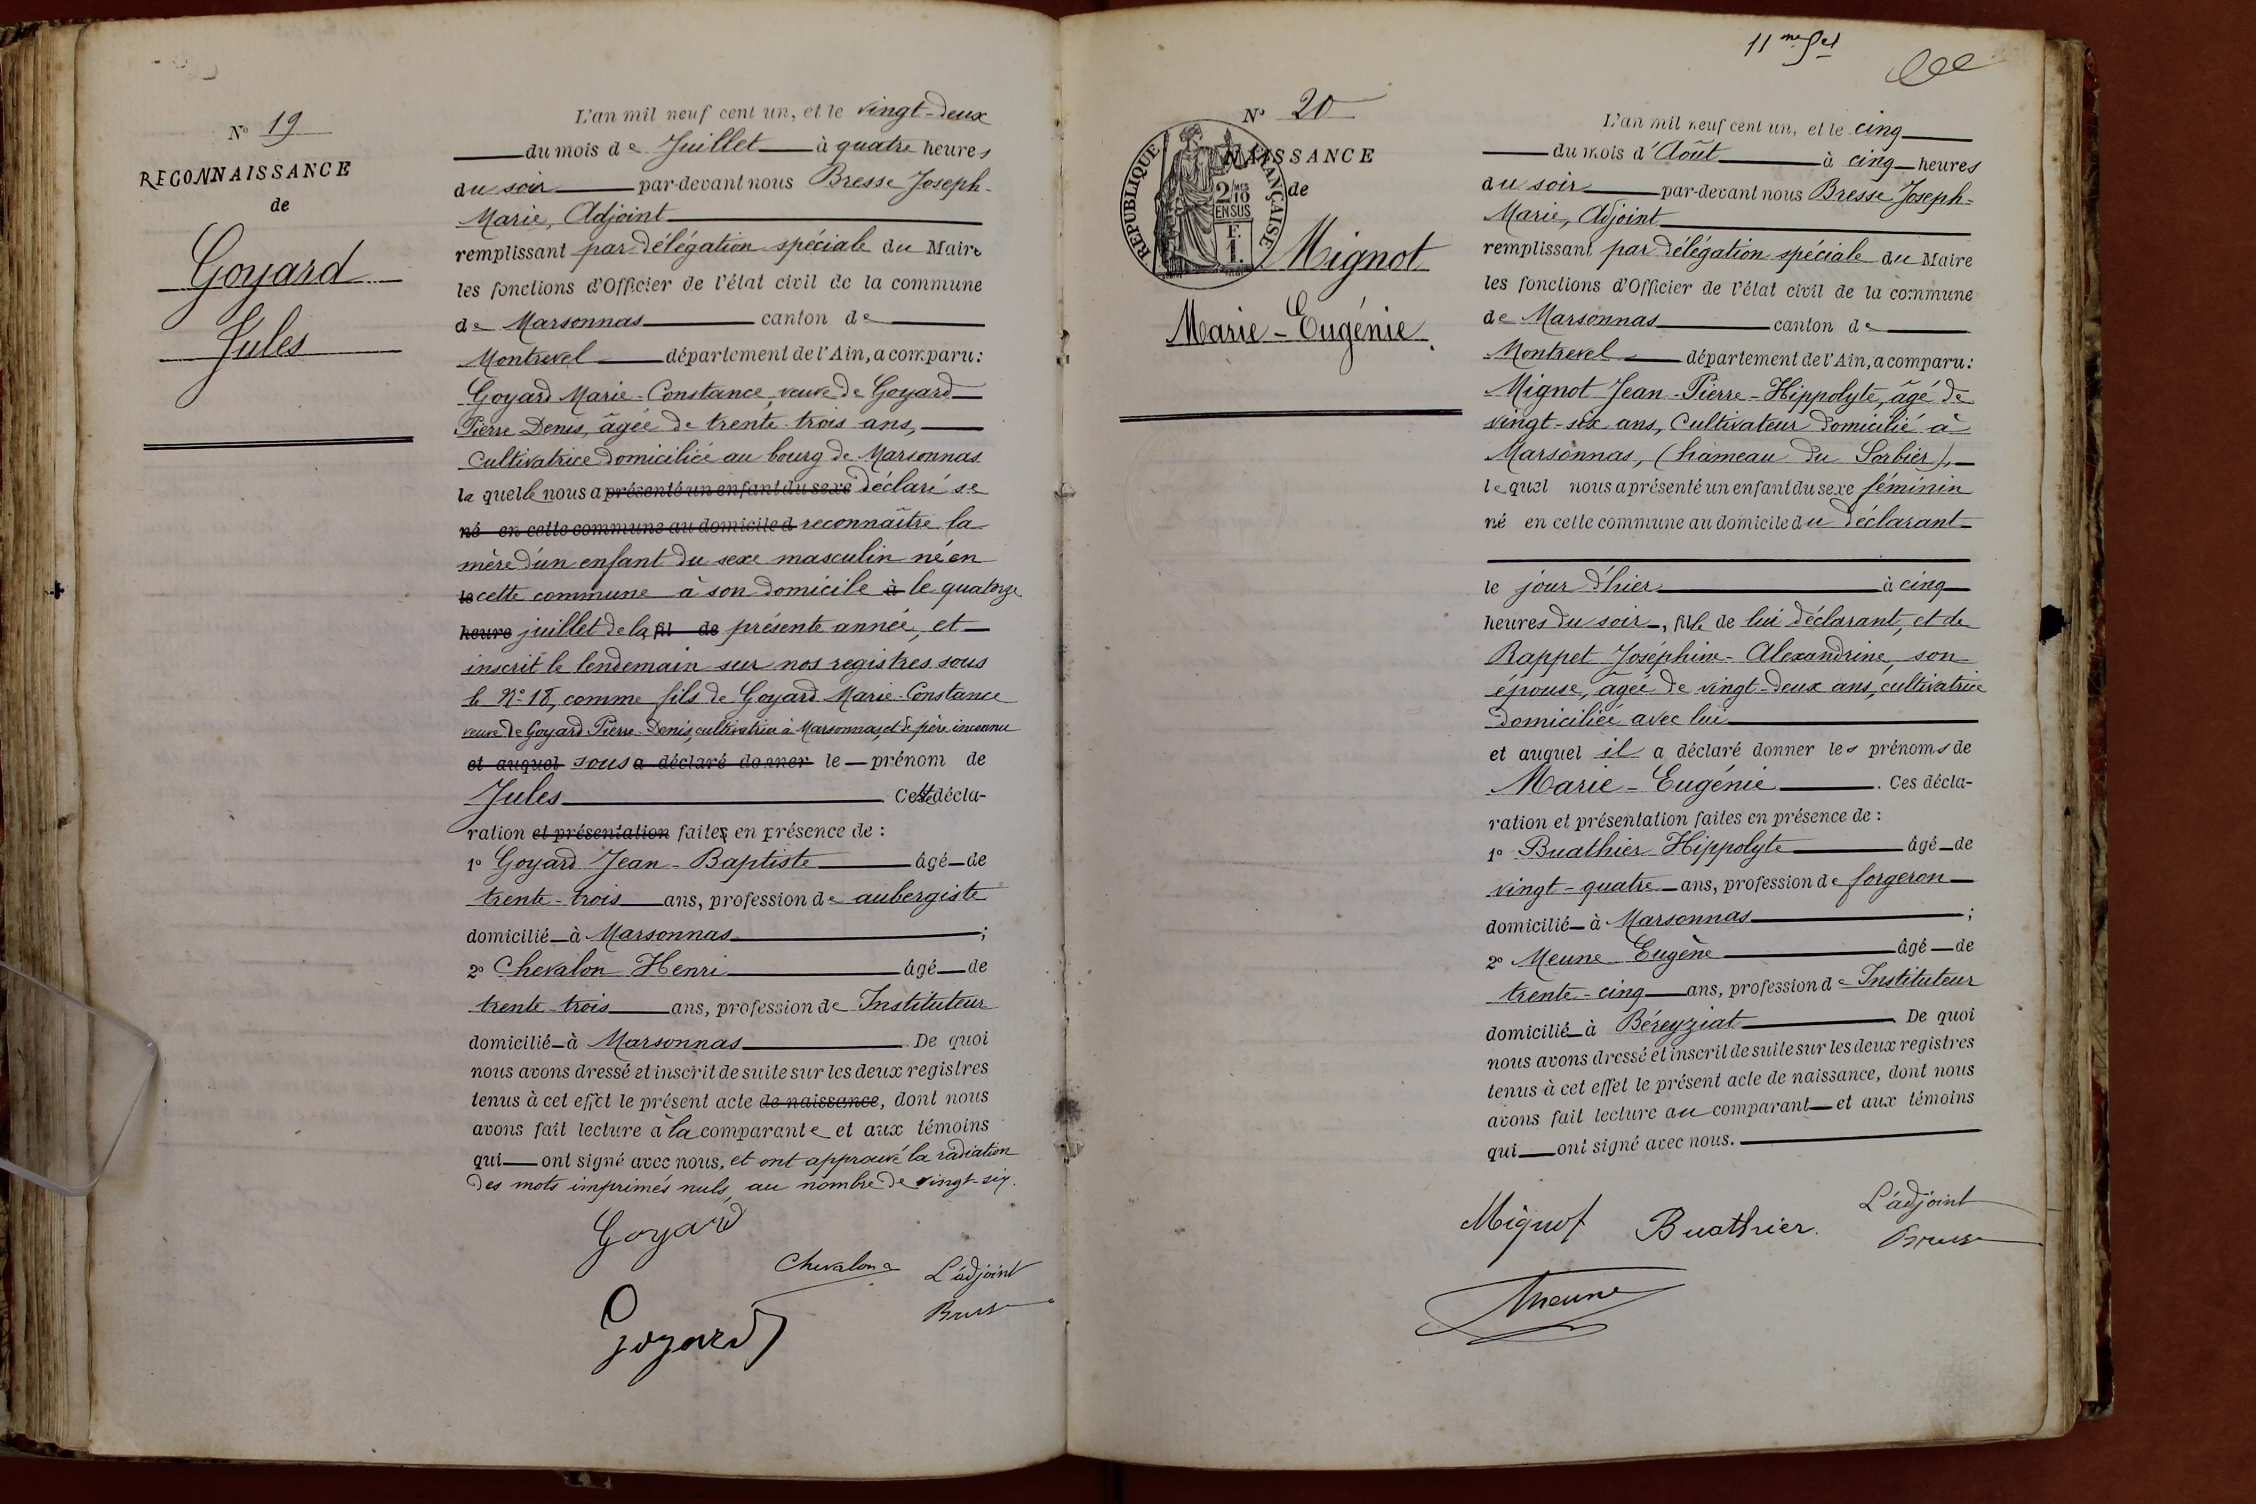 N° 19
RECONNAISSANCE
de
Goyard
Jules
L'an mil neuf cent un, et le vingt-deux
du mois de Juillet à quatre heures
du soir par-devant nous Bresse Joseph-
Marie, Adjoint
remplissant par délégation spéciale du Maire
les fonctions d'Officier de l'état civil de la commune
de Marsonnas canton de
Montrevel département de l'Ain, a comparu:
Goyard Marie-Constance, veuve de Goyard
Pierre Denis, âgée de trente-trois ans,
Cultivatrice domiciliée au bourg de Marsonnas
laquelle nous a présenté un enfant du sexe déclaré se
né en cette commune au domicile d reconnaître la
mère d'un enfant du sexe masculin né en
le cette commune à son domicile à le quatorze
heure juillet de la fil de présente année, et
inscrit le lendemain sur nos registres sous
le N° 18, comme fils de Goyard Marie-Constance
veuve de Goyard Pierre-Denis, cultivatrice à Marsonnas, et de père inconnu
et auquel sous a déclaré donner le prénom de
Jules Cette décla-
ration et présentation faites en présence de :
1° Goyard Jean-Baptiste âgé de
trente-trois ans, profession de aubergiste
domicilié à Marsonnas ;
2° Chevalon Henri âgé de
trente-trois ans, profession de Instituteur
domicilié à Marsonnas. De quoi
nous avons dressé et inscrit de suite sur les deux registres
tenus à cet effet le présent acte de naissance, dont nous
avons fait lecture à la comparante et aux témoins
qui ont signé avec nous, et ont approuvé la radiation
des mots imprimés nuls, au nombre de vingt-six.
Goyard
Chevalon L'adjoint
Goyard Bresse
11me Set
N° 20
NAISSANCE
de
RÉPUBLIQUE FRANÇAISE
2/10 EN SUS
F. 1.
Mignot
Marie-Eugénie.
L'an mil neuf cent un, et le cinq
du mois d'Août à cinq heures
du soir par-devant nous Bresse Joseph-
Marie, Adjoint
remplissant par délégation spéciale du Maire
les fonctions d'Officier de l'état civil de la commune
de Marsonnas canton de
Montrevel département de l'Ain, a comparu:
Mignot Jean-Pierre-Hippolyte, âgé de
vingt-six ans, Cultivateur domicilié à
Marsonnas, (hameau du Sorbier),
lequel nous a présenté un enfant du sexe féminin
né en cette commune au domicile du déclarant
le jour d'hier à cinq
heures du soir, fille de lui déclarant, et de
Rappet Joséphine-Alexandrine, son
épouse, âgée de vingt-deux ans, cultivatrice
domiciliée avec lui
et auquel il a déclaré donner les prénoms de
Marie-Eugénie. Ces décla-
ration et présentation faites en présence de :
1° Buathier Hippolyte âgé de
vingt-quatre ans, profession de forgeron
domicilié à Marsonnas ;
2° Meune Eugène âgé de
trente-cinq ans, profession de Instituteur
domicilié à Béreyziat De quoi
nous avons dressé et inscrit de suite sur les deux registres
tenus à cet effet le présent acte de naissance, dont nous
avons fait lecture au comparant et aux témoins
qui ont signé avec nous.
Mignot Buathier. L'adjoint
Bresse
Meune